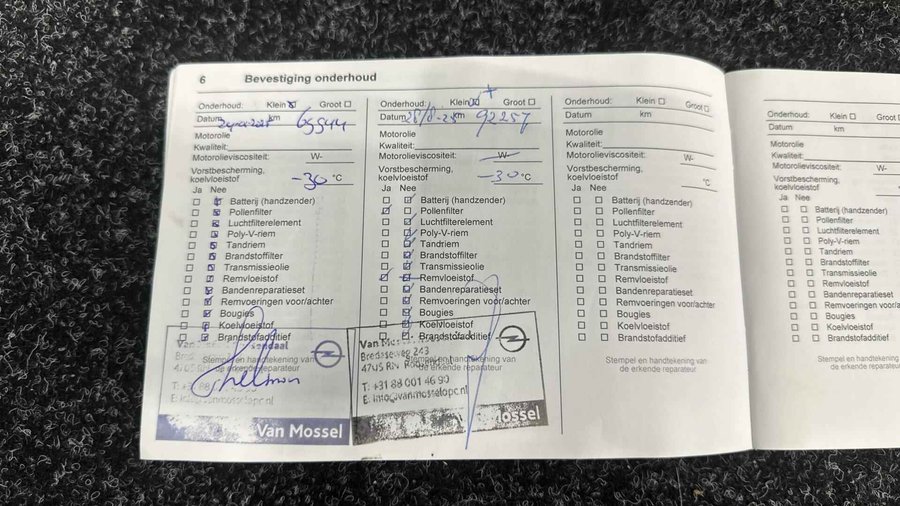 6 Bevestiging onderhoud
Onderhoud: Klein Groot
Datum km 65944
Motorolie
Kwaliteit:
Motorolieviscositeit: W-
Vorstbescherming,
koelvloeistof -30 °C
Ja Nee
Batterij (handzender)
Pollenfilter
Luchtfilterelement
Poly-V-riem
Tandriem
Brandstoffilter
Transmissieolie
Remvloeistof
Bandenreparatieset
Remvoeringen voor/achter
Bougies
Koelvloeistof
Brandstofadditief
Stempel en handtekening van
de erkende reparateur
Van Mossel
Onderhoud: Klein Groot
Datum 28/8-25 km 92257
Motorolie
Kwaliteit:
Motorolieviscositeit: W-
Vorstbescherming,
koelvloeistof -30 °C
Ja Nee
Batterij (handzender)
Pollenfilter
Luchtfilterelement
Poly-V-riem
Tandriem
Brandstoffilter
Transmissieolie
Remvloeistof
Bandenreparatieset
Remvoeringen voor/achter
Bougies
Koelvloeistof
Brandstofadditief
Stempel en handtekening van
de erkende reparateur
Bredaseweg 243
T: +31 88 001 46 90
E: info@vanmosselopc.nl
Onderhoud: Klein Groot
Datum km
Motorolie
Kwaliteit:
Motorolieviscositeit: W-
Vorstbescherming,
koelvloeistof °C
Ja Nee
Batterij (handzender)
Pollenfilter
Luchtfilterelement
Poly-V-riem
Tandriem
Brandstoffilter
Transmissieolie
Remvloeistof
Bandenreparatieset
Remvoeringen voor/achter
Bougies
Koelvloeistof
Brandstofadditief
Stempel en handtekening van
de erkende reparateur
Onderhoud: Klein
Datum km
Motorolie
Kwaliteit:
Motorolieviscositeit: W-
Vorstbescherming,
koelvloeistof
Ja Nee
Batterij (handzender)
Pollenfilter
Luchtfilterelement
Poly-V-riem
Tandriem
Brandstoffilter
Transmissieolie
Remvloeistof
Bandenreparatieset
Remvoeringen voor/achter
Bougies
Koelvloeistof
Brandstofadditief
Stempel en handtekening van
de erkende reparateur